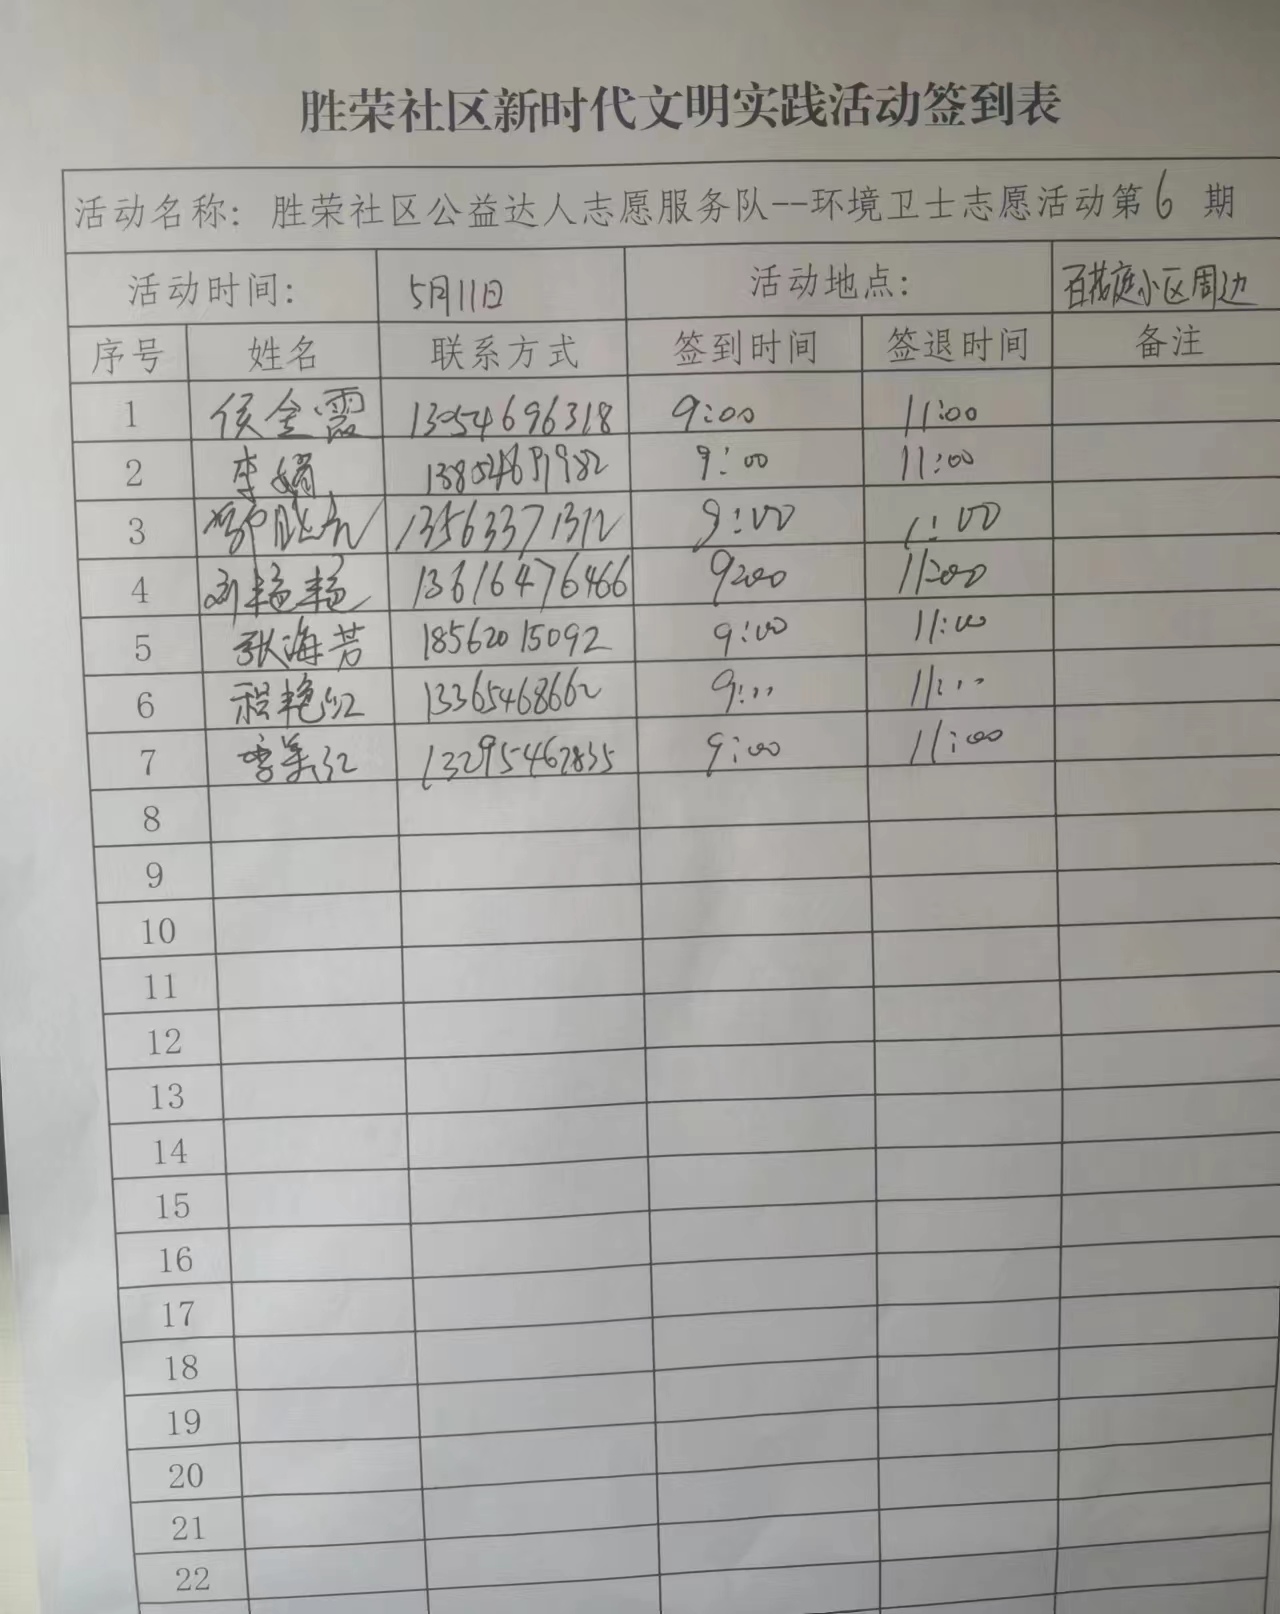 胜荣社区新时代文明实践活动签到表
活动名称: 胜荣社区公益达人志愿服务队--环境卫士志愿活动第6 期
活动时间: 5月11日 活动地点: 百花庭小区周边
序号 姓名 联系方式 签到时间 签退时间 备注
1 侯金霞 13054696318 9:00 11:00
2 李娟 9:00 11:00
3 13563371312 9:00 11:00
4 刘艳艳 13616476466 9:00 11:00
5 张海芳 18562015092 9:00 11:00
6 程艳红 13365468662 9:00 11:00
7 李美红 9:00 11:00
8
9
10
11
12
13
14
15
16
17
18
19
20
21
22